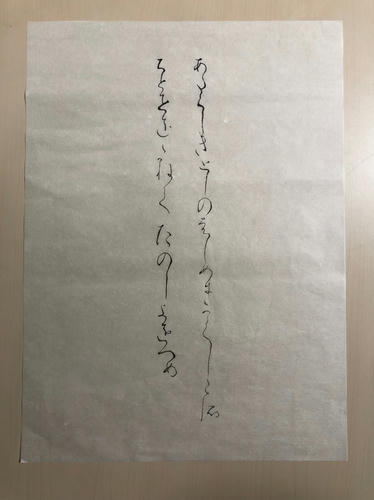 あたらしきとしのはしめにかくしこそ
ちとせをかねてたのしきをつめ